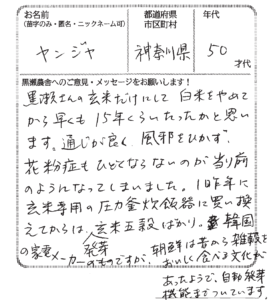 お名前
(苗字のみ・匿名・ニックネーム可)
都道府県
市区町村
年代
ヤンジャ
神奈川県
50
才代
黒瀬農舎へのご意見・メッセージをお願いします!
黒瀬さんの玄米だけにして 白米をやめて
から早くも 15年くらいたったかと思い
ます。通じが良く、風邪をひかず、
花粉症もひどくならないのが当り前
のようになってしまいました。1昨年に
玄米専用の圧力釜炊飯器に買い換
えてからは、玄米五穀ばかり。韓国
の家電メーカーのものですが、
発芽
朝鮮は昔から雑穀を
おいしく食べる文化が
あったようで、自動発芽
機能までついています